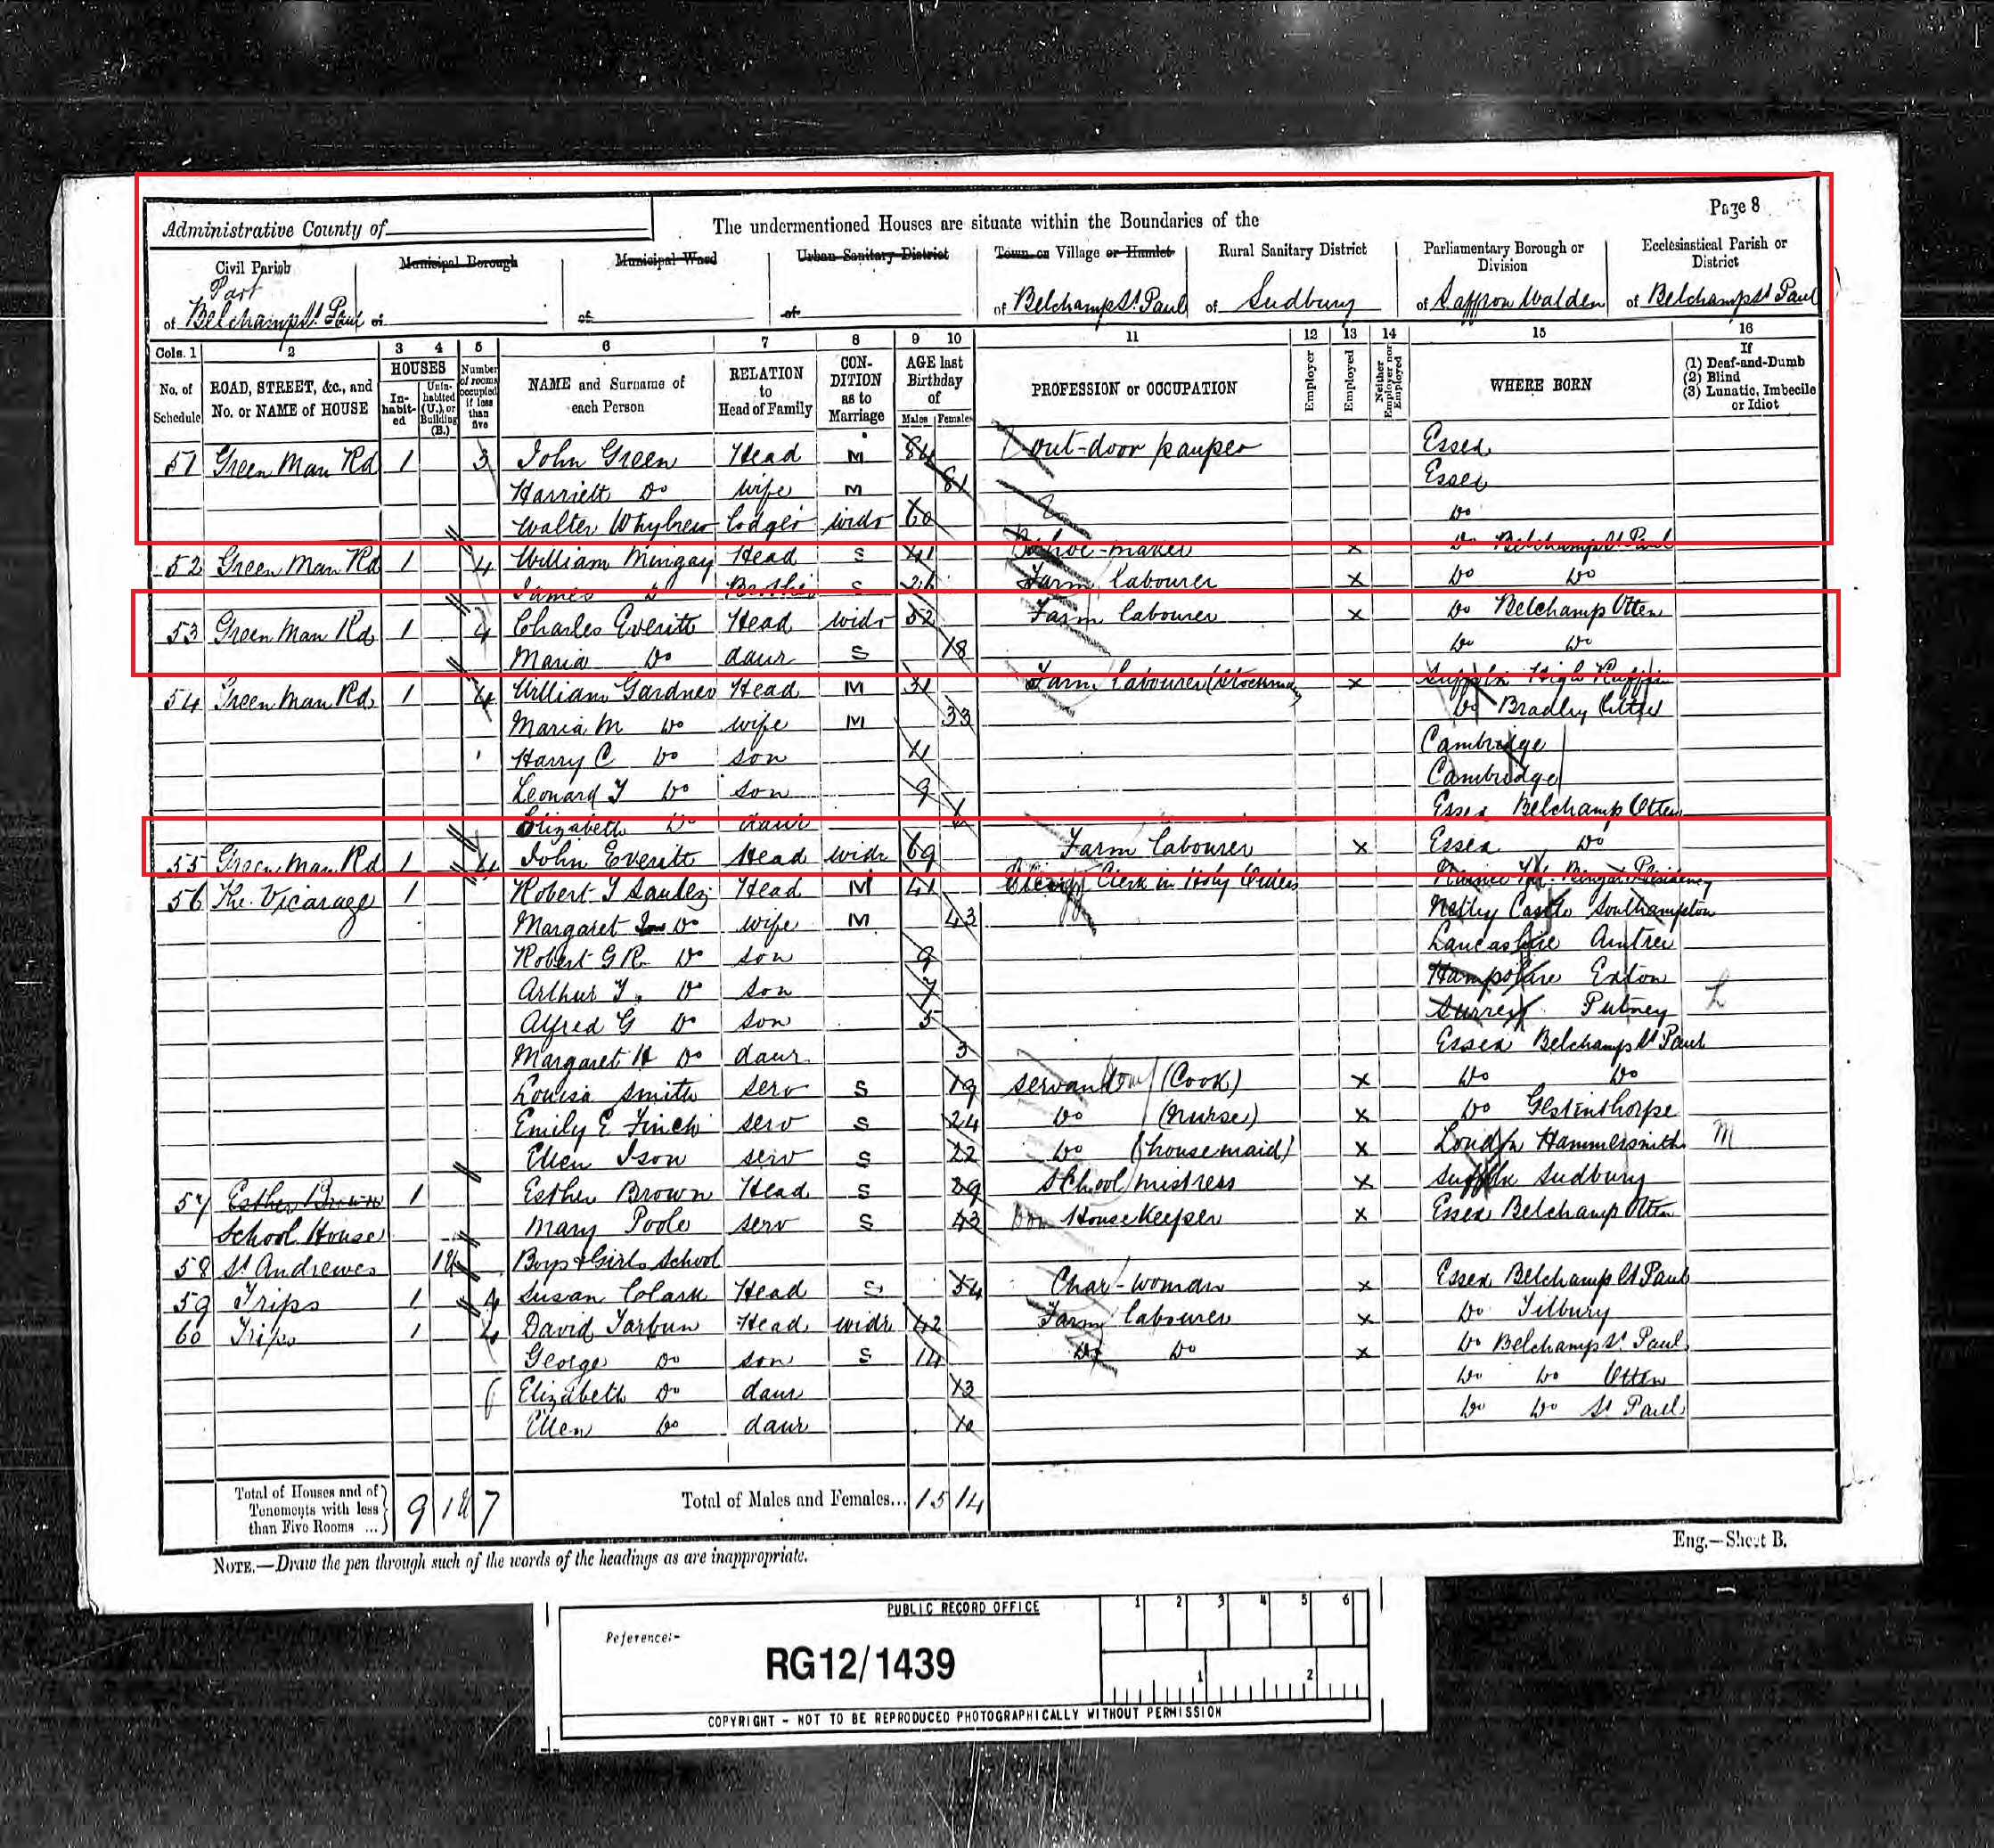 Page 8
Administrative County of
The undermentioned Houses are situate within the Boundaries of the
Civil Parish
Municipal Borough
Municipal Ward
Urban Sanitary District
Town or Village or Hamlet
Rural Sanitary District
Parliamentary Borough or Division
Ecclesiastical Parish or District
Part of Belchamp St. Paul
of
of
of
of Belchamp St. Paul
of Sudbury
of Saffron Walden
of Belchamp St Paul
Cols. 1 2 3 4 5 6 7 8 9 10 11 12 13 14 15 16
No. of Schedule
ROAD, STREET, &c., and No. or NAME of HOUSE
HOUSES
In-habit-ed
Unin-habited (U.), or Building (B.)
Number of rooms occupied if less than five
NAME and Surname of each Person
RELATION to Head of Family
CON-DITION as to Marriage
AGE last Birthday of
Males Females
PROFESSION or OCCUPATION
Employer
Employed
Neither Employer nor Employed
WHERE BORN
If
(1) Deaf-and-Dumb
(2) Blind
(3) Lunatic, Imbecile or Idiot
51 Green Man Rd 1 3 John Green Head M 84 out-door pauper Essex
Harriett Do wife M 81 Essex
Walter Whybrew lodger widr 60 Do
52 Green Man Rd 1 4 William Mingay Head S 41 Shoe-maker x Do Belchamp St Paul
James Do Brother S 26 Farm labourer x Do Do
53 Green Man Rd 1 4 Charles Everitt Head widr 52 Farm labourer x Do Belchamp Otten
Maria Do daur S 18 Do Do
54 Green Man Rd 1 4 William Gardner Head M 31 Farm labourer (Stockman) x Suffolk High
Maria M Do wife M 33 Do Bradley Little
Harry C Do son 11 Cambridge
Leonard J Do son 9 Cambridge
Elizabeth Do daur 1 Essex Belchamp Otten
55 Green Man Rd 1 4 John Everitt Head widr 69 Farm labourer x Essex Do
56 The Vicarage 1 Robert J Saulez Head M 41 Clerk in Holy Orders Bengal Presidency
Margaret Do wife M 43 Netley Castle Southampton
Robert G R. Do son 9 Lancashire Aintree
Arthur J. Do son 7 Hampshire Exton
Alfred G Do son 5 Surrey Putney L
Margaret H Do daur. 3 Essex Belchamp St Paul
Louisa Smith serv S 19 servant (Cook) x Do Do
Emily E Finch serv S 24 Do (Nurse) x Do Gestinthorpe
Ellen Ison serv S 22 Do (housemaid) x London Hammersmith M
57 Esther Brown 1 Esther Brown Head S 29 School mistress x Suffolk Sudbury
School House Mary Poole serv S 43 House Keeper x Essex Belchamp Otten
58 St Andrewes 1U Boys & Girls School
59 Trips 1 4 Susan Clark Head S 54 Char-woman x Essex Belchamp St Paul
60 Trips 1 4 David Tarbun Head widr 42 Farm labourer x Do Tilbury
George Do son S 14 Do Do x Do Belchamp St. Paul
Elizabeth Do daur 13 Do Do Otten
Ellen Do daur 10 Do Do St Paul
Total of Houses and of Tenements with less than Five Rooms ... 9 1U 7
Total of Males and Females... 15 14
Eng.—Sheet B.
NOTE.—Draw the pen through such of the words of the headings as are inappropriate.
PUBLIC RECORD OFFICE
1 2 3 4 5 6
Reference:-
RG12/1439
1 2
COPYRIGHT - NOT TO BE REPRODUCED PHOTOGRAPHICALLY WITHOUT PERMISSION